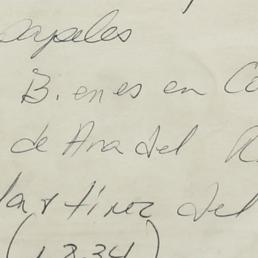 papeles
Bienes en Co
de Ana del A
Martinez del
(1834)